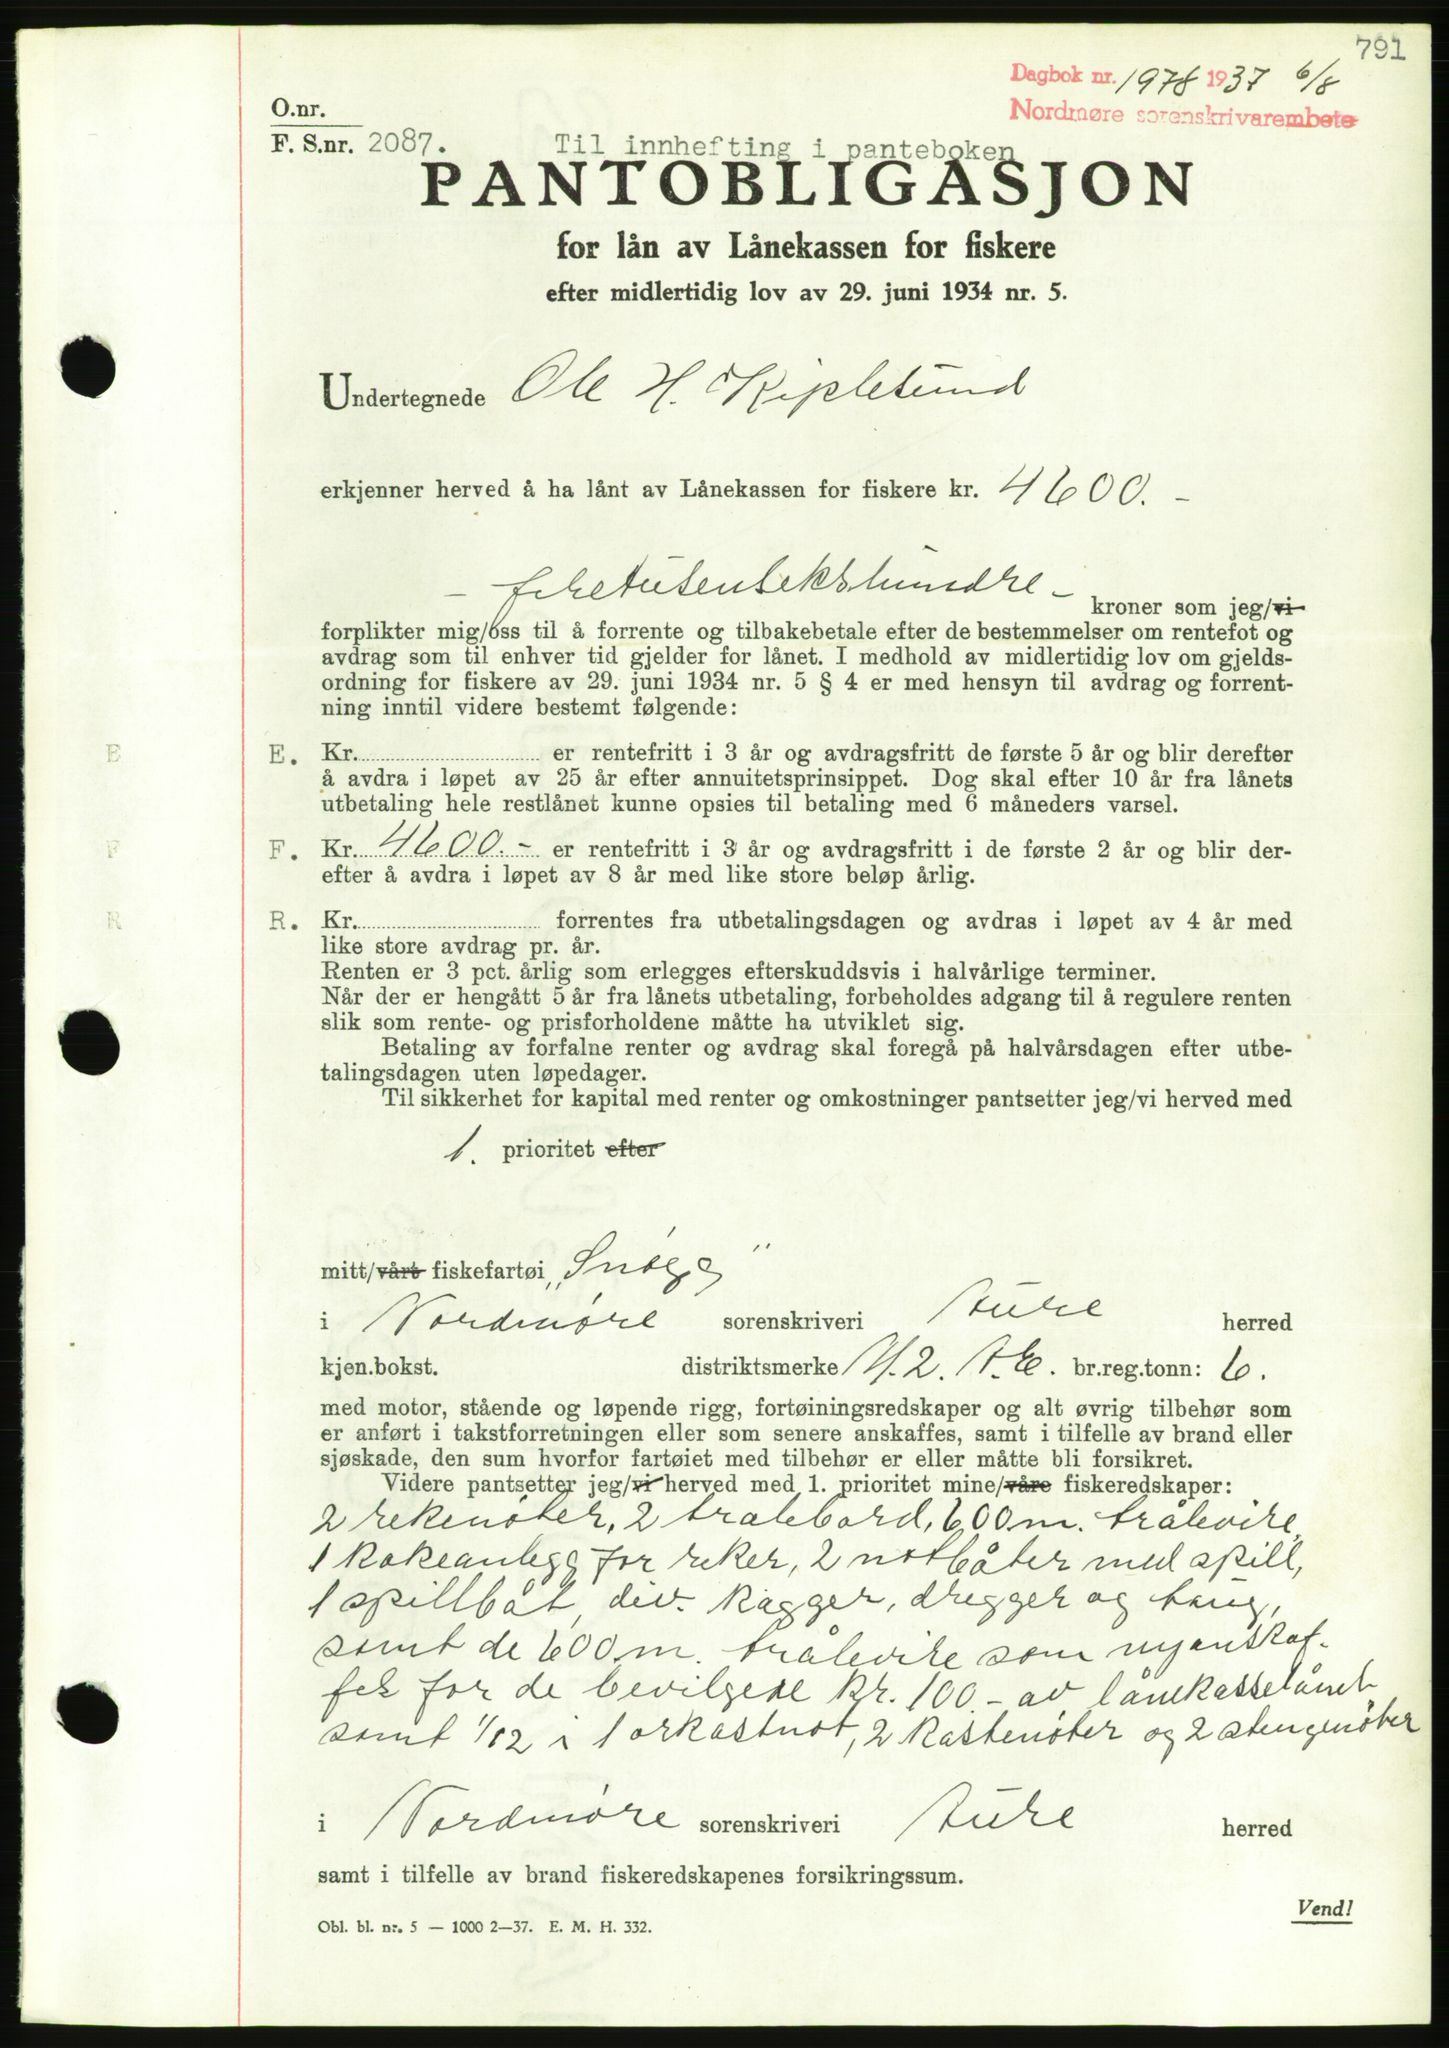 791
Dagbok nr. 1978 1937 6/8
Nordmøre sorenskrivarembete
O.nr.
F. S.nr. 2087.
Til innhefting i panteboken
PANTOBLIGASJON
for lån av Lånekassen for fiskere
efter midlertidig lov av 29. juni 1934 nr. 5.
Undertegnede Ole H. Kjplesund
erkjenner herved å ha lånt av Lånekassen for fiskere kr. 4600.-
- firetusensekshundre - kroner som jeg/vi
forplikter mig/oss til å forrente og tilbakebetale efter de bestemmelser om rentefot og
avdrag som til enhver tid gjelder for lånet. I medhold av midlertidig lov om gjelds-
ordning for fiskere av 29. juni 1934 nr. 5 § 4 er med hensyn til avdrag og forrent-
ning inntil videre bestemt følgende:
E E. Kr. er rentefritt i 3 år og avdragsfritt de første 5 år og blir derefter
å avdra i løpet av 25 år efter annuitetsprinsippet. Dog skal efter 10 år fra lånets
utbetaling hele restlånet kunne opsies til betaling med 6 måneders varsel.
F F. Kr. 4600.- er rentefritt i 3 år og avdragsfritt i de første 2 år og blir der-
efter å avdra i løpet av 8 år med like store beløp årlig.
R R. Kr. forrentes fra utbetalingsdagen og avdras i løpet av 4 år med
like store avdrag pr. år.
Renten er 3 pct. årlig som erlegges efterskuddsvis i halvårlige terminer.
Når der er hengått 5 år fra lånets utbetaling, forbeholdes adgang til å regulere renten
slik som rente- og prisforholdene måtte ha utviklet sig.
Betaling av forfalne renter og avdrag skal foregå på halvårsdagen efter utbe-
talingsdagen uten løpedager.
Til sikkerhet for kapital med renter og omkostninger pantsetter jeg/vi herved med
1. prioritet efter
mitt/vårt fiskefartøi „Snøgg"
i Nordmøre sorenskriveri Aure herred
kjen.bokst. distriktsmerke M. 2. A.E. br.reg.tonn: 6.
med motor, stående og løpende rigg, fortøiningsredskaper og alt øvrig tilbehør som
er anført i takstforretningen eller som senere anskaffes, samt i tilfelle av brand eller
sjøskade, den sum hvorfor fartøiet med tilbehør er eller måtte bli forsikret.
Videre pantsetter jeg/vi herved med 1. prioritet mine/våre fiskeredskaper:
2 rekenøter, 2 tralebord, 600 m. trålevire,
1 kokeanlegg for reker, 2 notbåter med spill,
1 spillbåt, div. kagger, dregger og taug,
samt de 600 m. trålevire som nyanskaf-
fes for de bevilgede kr. 100.- av lånekasselånet
samt 1/12 i 1 orkastnot, 2 kastenøter og 2 stengenøter
i Nordmøre sorenskriveri Aure herred
samt i tilfelle av brand fiskeredskapenes forsikringssum.
Vend!
Obl. bl. nr. 5 — 1000 2—37. E. M. H. 332.